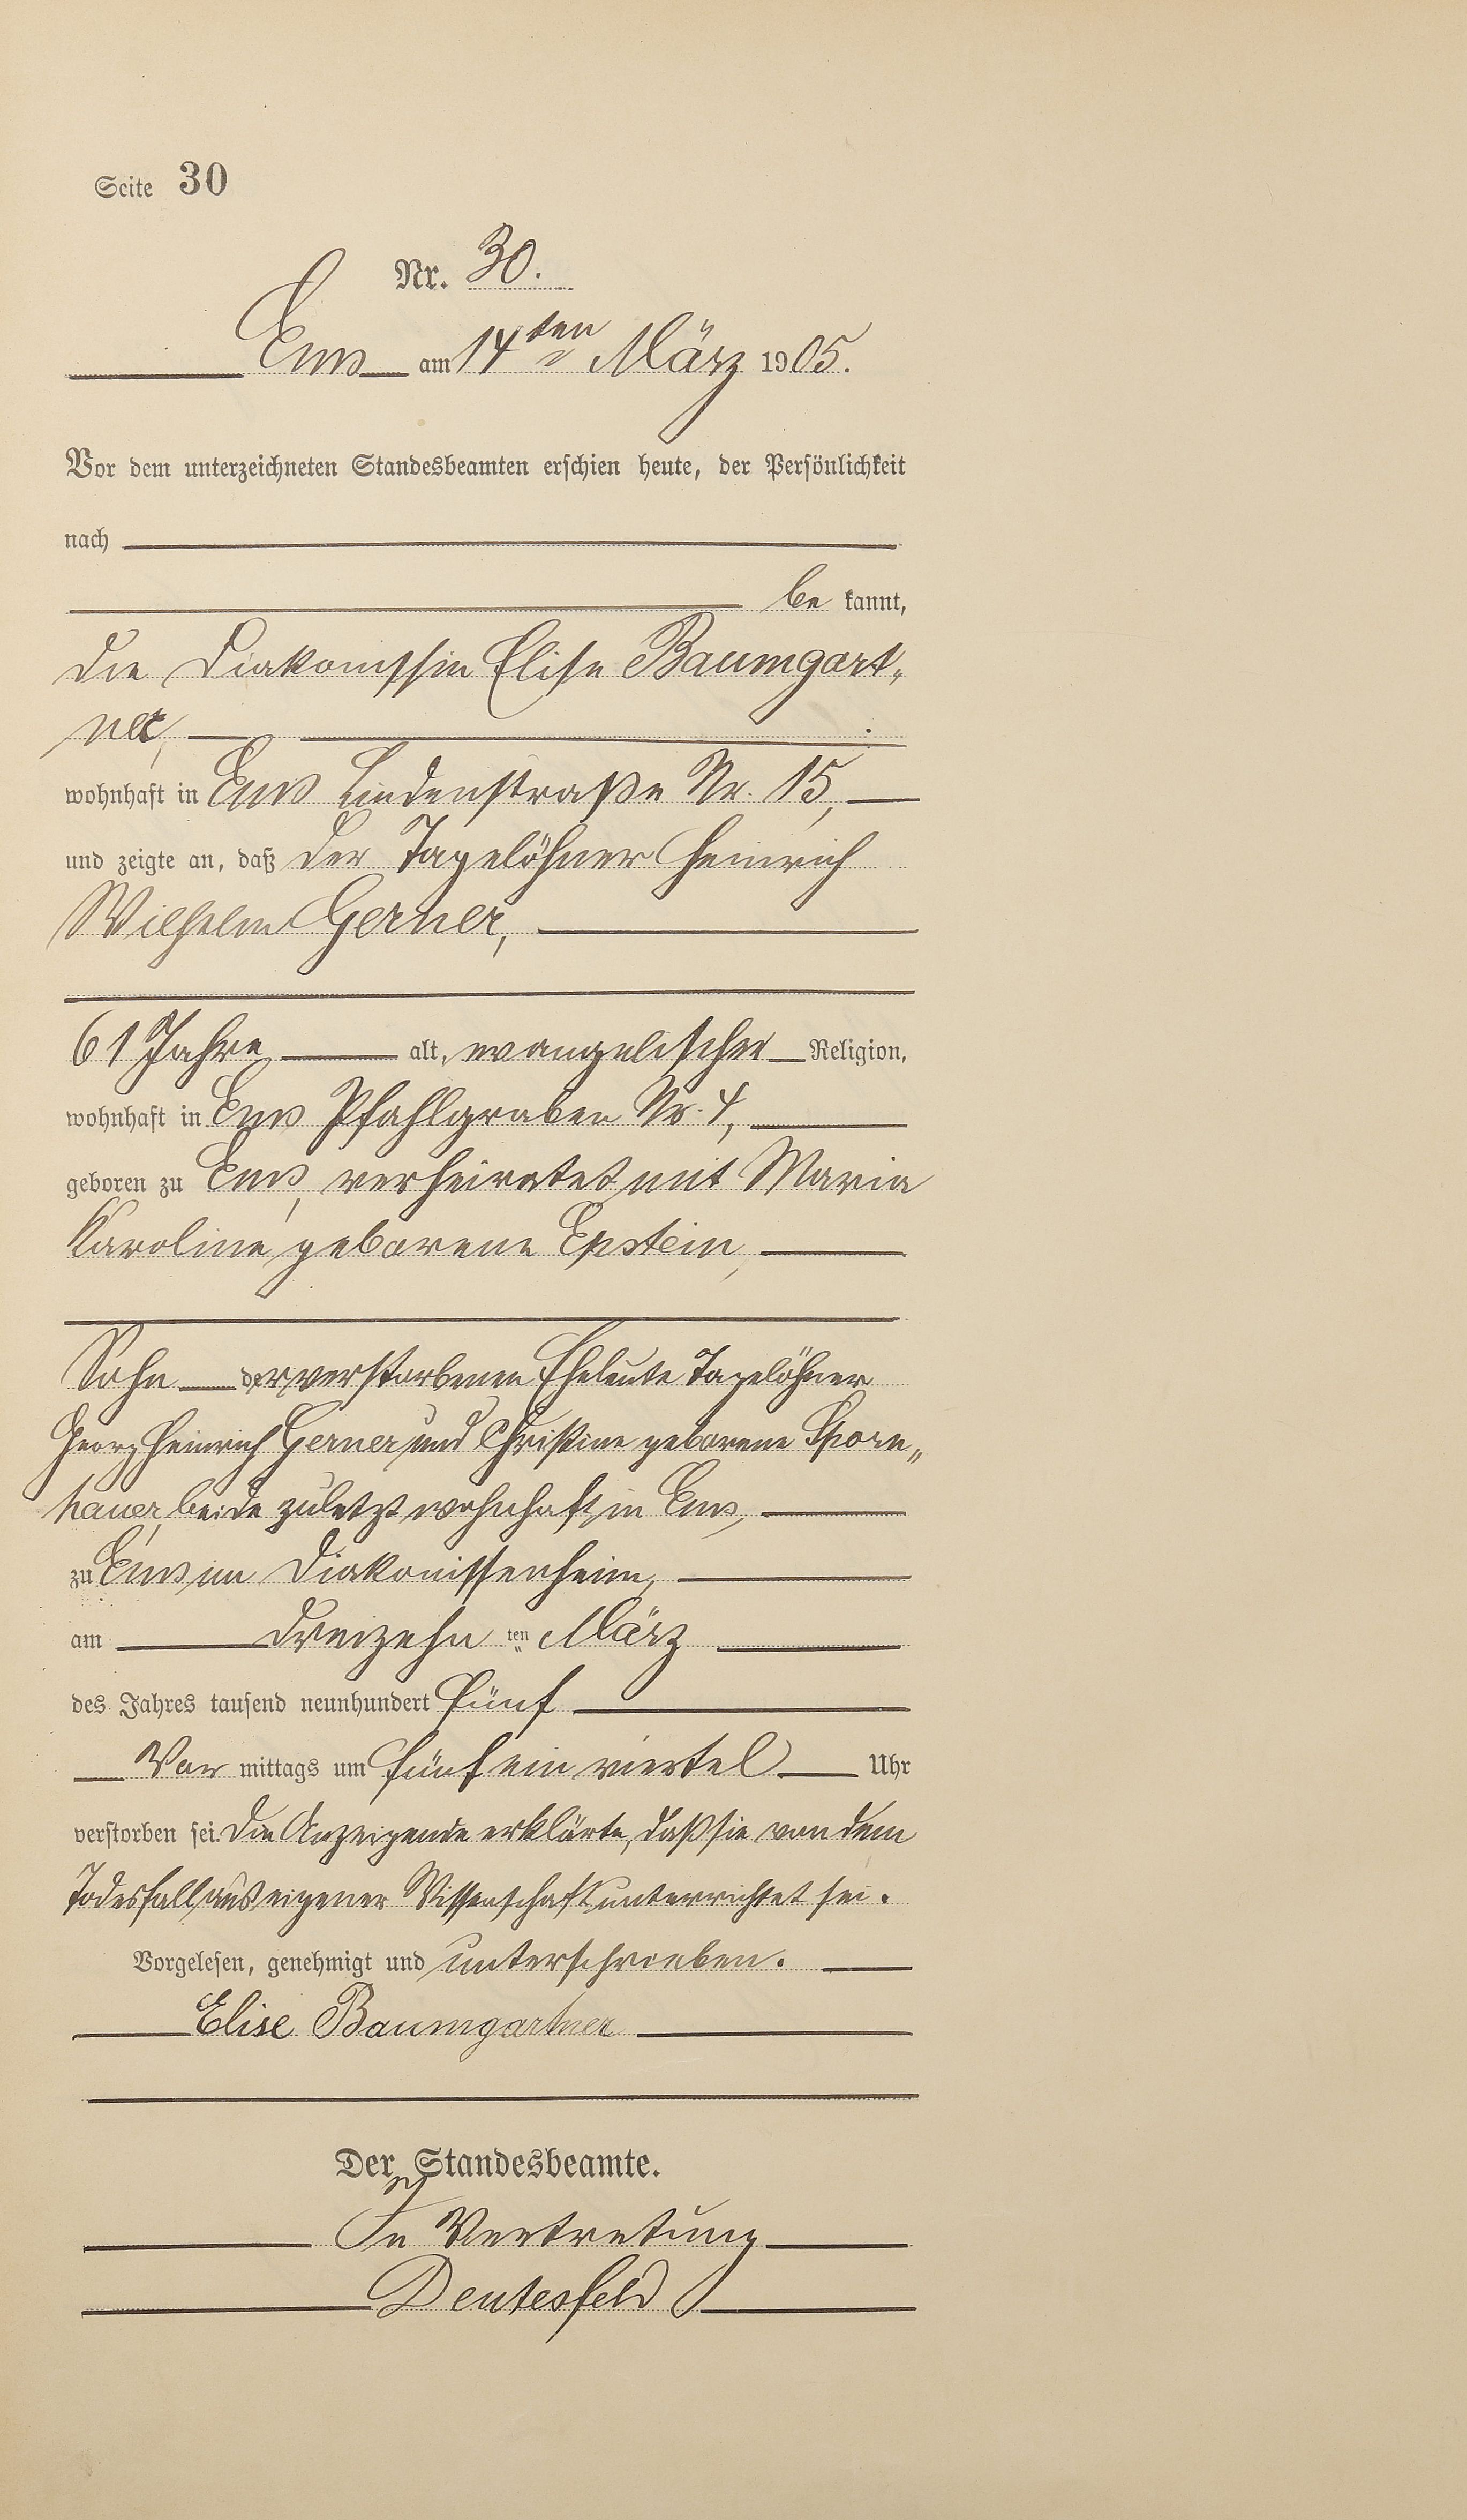 Seite 30
Nr. 30.
Ems am 14ten März 1905.
Vor dem unterzeichneten Standesbeamten erschien heute, der Persönlichkeit
nach
be kannt,
die Diakonissin Elise Baumgart„
ner,
wohnhaft in Ems Lindenstraße Nr. 15,
und zeigte an, daß der Tagelöhner Heinrich
Wilhelm Gerner,
61 Jahre alt, evangelischer Religion,
wohnhaft in Ems Pfahlgraben Nr. 4,
geboren zu Ems, verheiratet mit Maria
Karoline geborene Epstein,
Sohn der verstorbenen Eheleute Tagelöhner
Georg Heinrich Gerner und Christine geborene Sporn„
hauer, beide zuletzt wohnhaft in Ems,
zu Ems im Diakonissenheim,
am dreizehn ten März
des Jahres tausend neunhundert fünf
Vor mittags um fünf ein viertel Uhr
verstorben sei. Die Anzeigende erklärte, daß sie von dem
Todesfall aus eigener Wissenschaft unterrichtet sei.
Vorgelesen, genehmigt und unterschrieben.
Elise Baumgartner
Der Standesbeamte.
In Vertretung
Deutesfeld